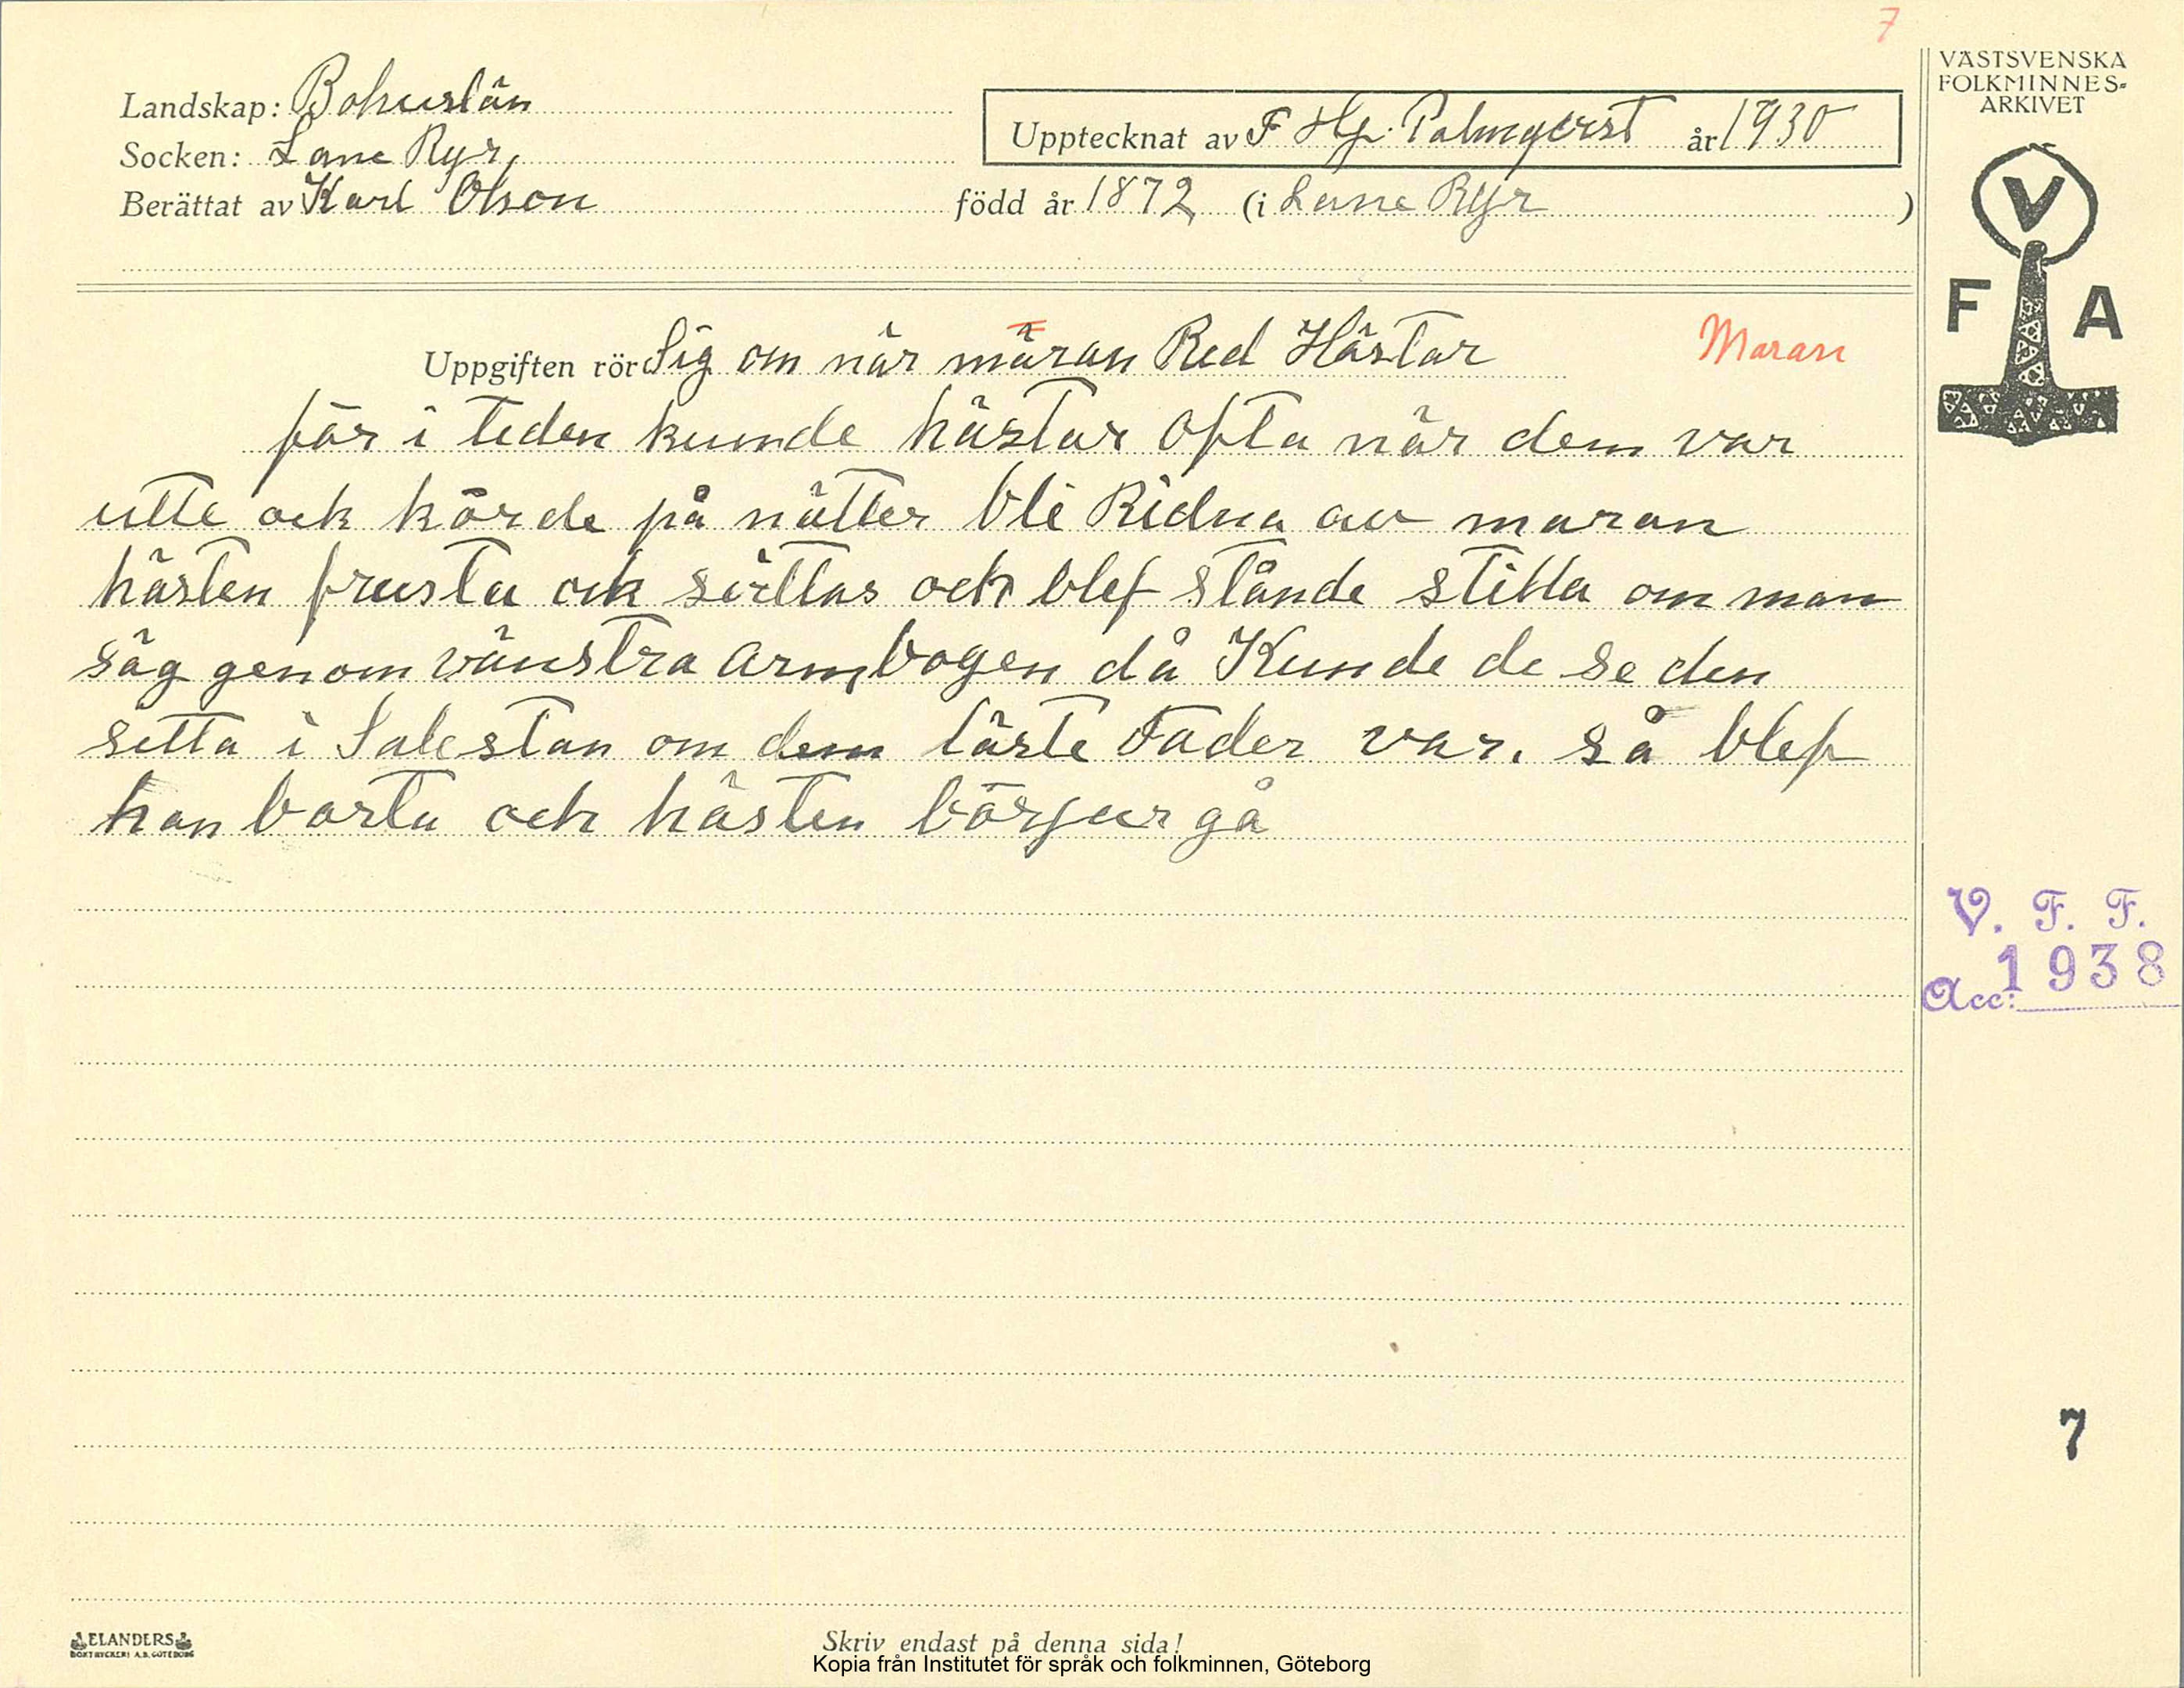 7
VÄSTSVENSKA
FOLKMINNES-
ARKIVET
Landskap: Bohuslän
Socken: Lane Ryr,
Upptecknat av F Hj. Palmqvist år 1930
Berättat av Karl Olson född år 1872 (i Lane Ryr )
V
F A
Uppgiften rör Sig om när märan Red Hästar
Maran
för i teden kunde hästar ofta när dem var
utte och körde på nätter bli Ridna av maran
hästen frusta ock svettas och blef stånde stilla om man
såg genom vänstra armbogen då Kunde de se den
sitta i Salestan om dem läste Fader var. så blef
han borta och hästen börjar gå
V. F. F.
Acc: 1938
7
ELANDERS
BOKTRYCKERI A.B. GÖTEBORG
Skriv endast på denna sida!
Kopia från Institutet för språk och folkminnen, Göteborg